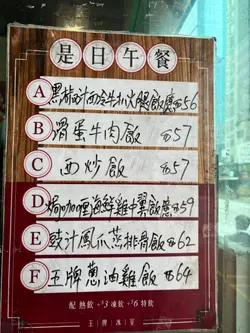 是日午餐
A 黑椒汁西冷牛扒火腿飯意$56
B 滑蛋牛肉飯 $57
C 西炒飯 $57
D 焗咖喱海鮮雞翼飯意$59
E 豉汁鳳爪蒸排骨飯$62
F 王牌蔥油雞飯 $64
配熱飲 +$3凍飲 +$6特飲
王牌冰室